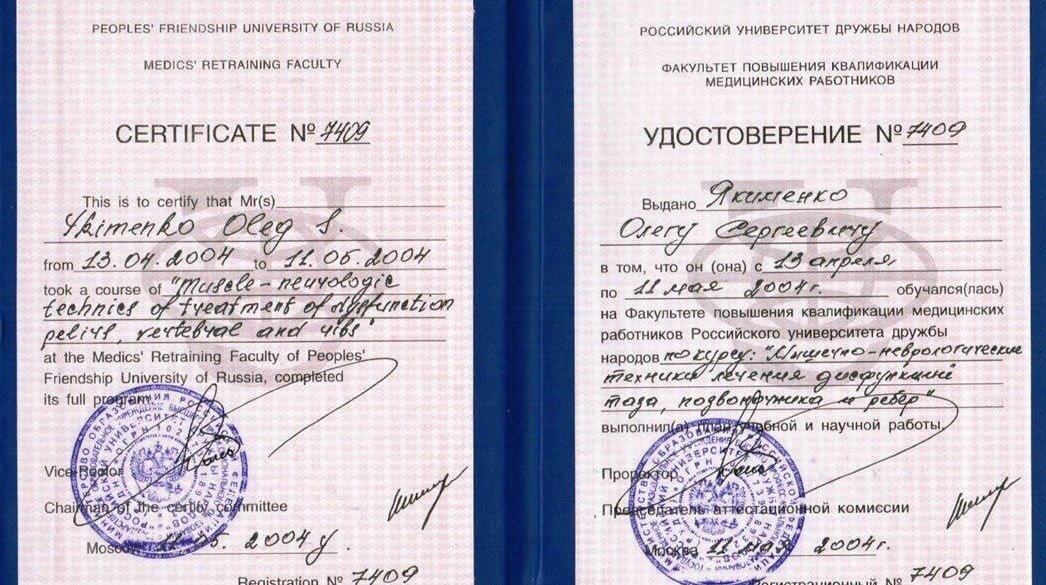 PEOPLES' FRIENDSHIP UNIVERSITY OF RUSSIA
MEDICS' RETRAINING FACULTY
CERTIFICATE № 7409
This is to certify that Mr(s)
Ykimenko Oleg S.
from 13.04.2004 to 11.05.2004
took a course of "Muscle-neurologic
technics of treatment of dysfunction
pelvis, vertebral and ribs"
at the Medics' Retraining Faculty of Peoples'
Friendship University of Russia, completed
its full program.
Vice-Rector
Chairman of the certify committee
Moscow 2004 у.
Registration № 7409
РОССИЙСКИЙ УНИВЕРСИТЕТ ДРУЖБЫ НАРОДОВ
ФАКУЛЬТЕТ ПОВЫШЕНИЯ КВАЛИФИКАЦИИ
МЕДИЦИНСКИХ РАБОТНИКОВ
УДОСТОВЕРЕНИЕ № 7409
Выдано Якименко
Олегу Сергеевичу
в том, что он (она) с 13 апреля
по 11 мая 2004г. обучался(лась)
на Факультете повышения квалификации медицинских
работников Российского университета дружбы
народов по курсу: "Мышечно-неврологические
техники лечения дисфункций
таза, позвоночника и ребер"
выполнил(а) план учебной и научной работы.
Проректор
Председатель аттестационной комиссии
Москва 11 мая 2004г.
Регистрационный № 7409